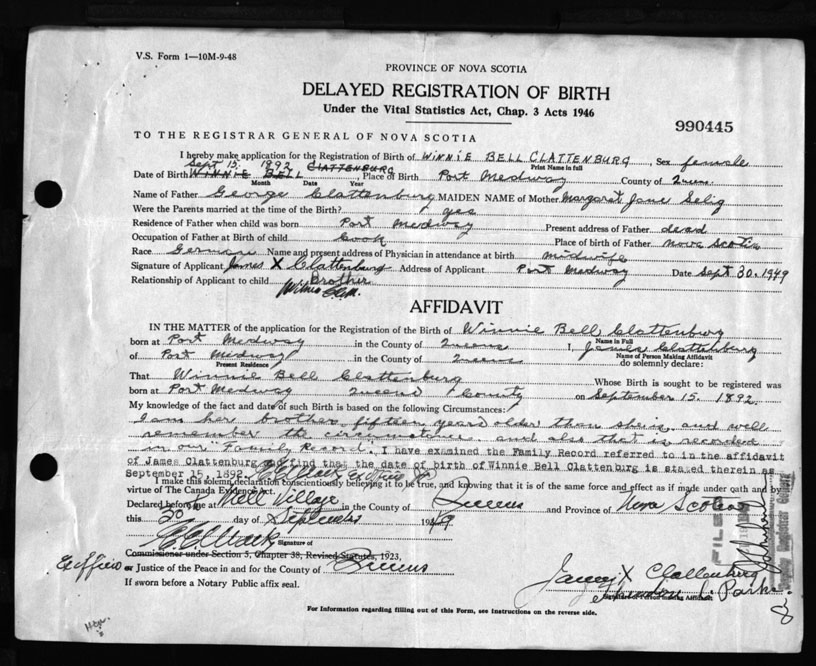 V.S. Form 1—10M-9-48
PROVINCE OF NOVA SCOTIA
DELAYED REGISTRATION OF BIRTH
Under the Vital Statistics Act, Chap. 3 Acts 1946
990445
TO THE REGISTRAR GENERAL OF NOVA SCOTIA
I hereby make application for the Registration of Birth of WINNIE BELL CLATTENBURG, Sex female
Print Name in full
Sept 15. 1892
Date of Birth WINNIE BELL CLATTENBURG, Place of Birth Port Medway County of
Month Date Year
Name of Father George Clattenburg MAIDEN NAME of Mother Margaret Jane Selig
Were the Parents married at the time of the Birth? yes
Residence of Father when child was born Port Medway Present address of Father dead
Occupation of Father at Birth of child Cook Place of birth of Father Nova Scotia
Race German Name and present address of Physician in attendance at birth midwife
Signature of Applicant James X Clattenburg Address of Applicant Port Medway Date Sept 30. 1949
Relationship of Applicant to child Brother
AFFIDAVIT
IN THE MATTER of the application for the Registration of the Birth of Winnie Bell Clattenburg
Name in Full
born at Port Medway in the County of Queens I, James Clattenburg
Name of Person Making Affidavit
of Port Medway in the County of Queens do solemnly declare:
Present Residence
That Winnie Bell Clattenburg Whose Birth is sought to be registered was
born at Port Medway Queens County on September 15. 1892.
My knowledge of the fact and date of such Birth is based on the following Circumstances:
I am her brother fifteen years older than she is, and well
remember the circumstance and also that is recorded
in our Family Record. I have examined the Family Record referred to in the affidavit
of James Clattenburg and find that the date of birth of Winnie Bell Clattenburg is stated therein as
September 15, 1892
I make this solemn declaration conscientiously believing it to be true, and knowing that it is of the same force and effect as if made under oath and by
virtue of The Canada Evidence Act.
Declared before me at Mill Village in the County of Queens and Province of Nova Scotia
this 30 day of September 1949
Signature of
Commissioner under Section 5, Chapter 38, Revised Statutes, 1923,
Ex officio or Justice of the Peace in and for the County of Queens
If sworn before a Notary Public affix seal.
James X Clattenburg
Signature of Person making Affidavit
FILED
For Information regarding filling out of this Form, see Instructions on the reverse side.